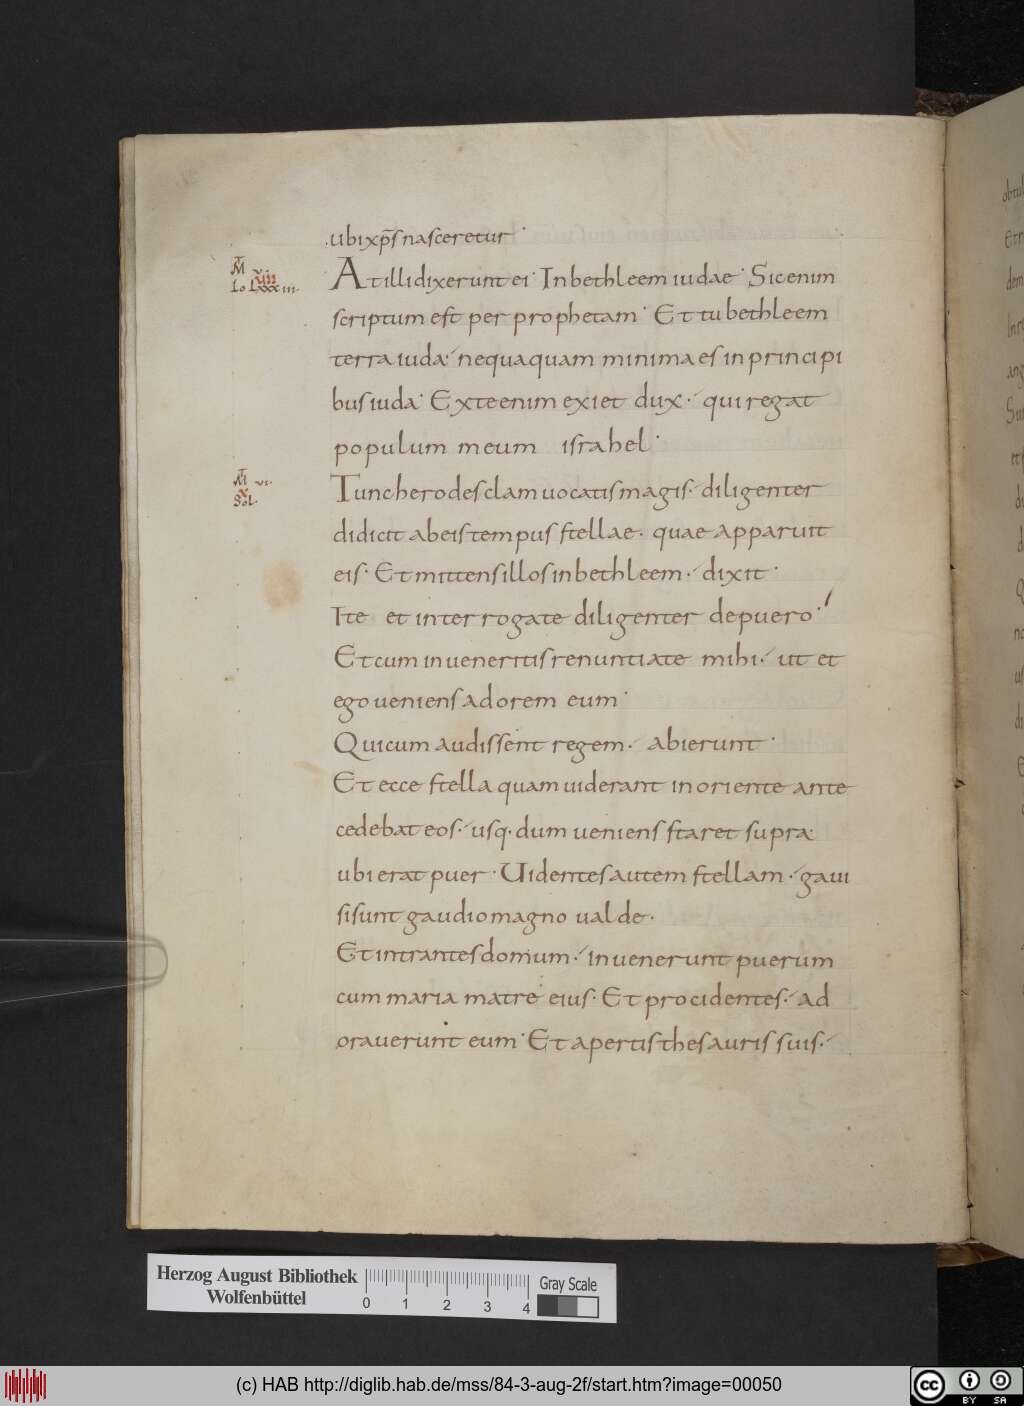 ubi xp̄s nasceretur·
M̄ v.
VII
At illi dixerunt ei· In bethleem iudae· Sic enim
Io LXXXIII.
scriptum est per prophetam· Et tu bethleem
terra iuda· nequaquam minima es in principi
bus iuda· Ex te enim exiet dux· qui regat
populum meum israhel·
M̄ VI.
Tunc herodes clam uocatis magis· diligenter
X
Sol.
didicit ab eis tempus stellae· quae apparuit
eis· Et mittens illos in bethleem· dixit·
Ite et interrogate diligenter de puero·
Et cum inueneritis renuntiate mihi· ut et
ego ueniens adorem eum·
Qui cum audissent regem· abierunt·
Et ecce stella quam uiderant in oriente ante
cedebat eos· usq· dum ueniens staret supra
ubi erat puer· Uidentes autem stellam· gaui
si sunt gaudio magno ualde·
Et intrantes domum· inuenerunt puerum
cum maria matre eius· Et procidentes· ad
orauerunt eum· Et apertis thesauris suis·
obtul
Et r
dem
In r
ang
Sur
et
Herzog August Bibliothek
Wolfenbüttel
0 1 2 3 4
Gray Scale
(c) HAB http://diglib.hab.de/mss/84-3-aug-2f/start.htm?image=00050
cc BY SA